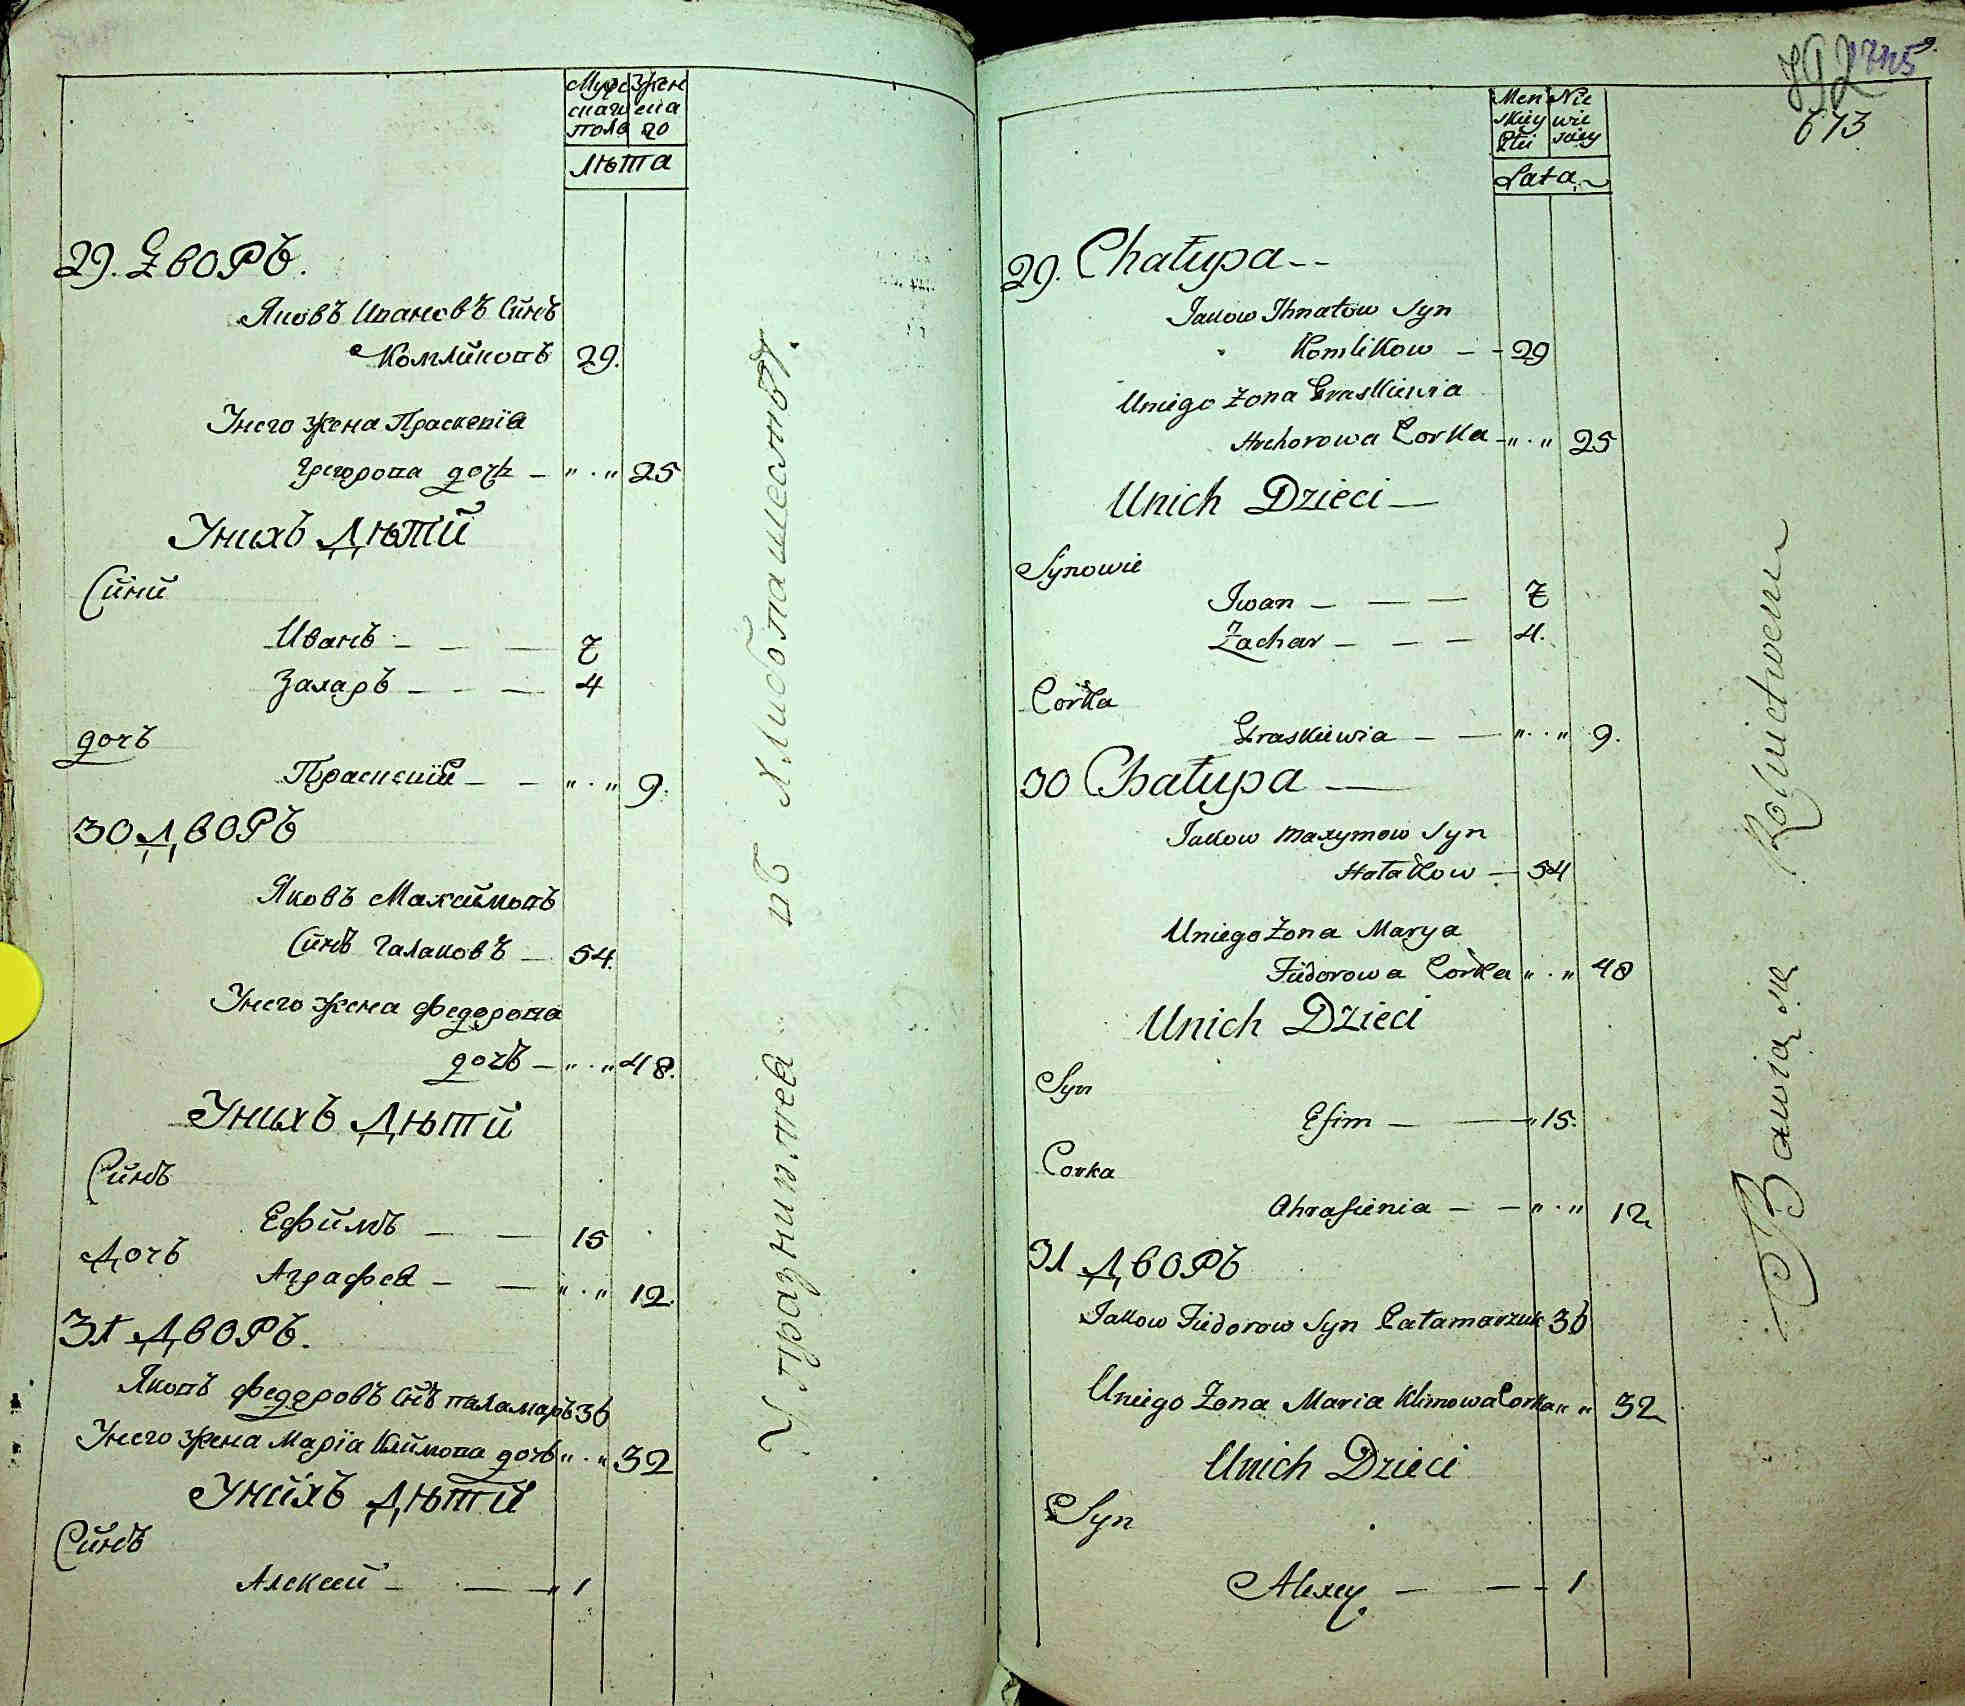 Мужс Жен
скаго ска
пола го
Лѣта
29. ДВОРЪ.
Яковъ Ивановъ Синъ
Комликовъ 29.
Унего жена Праскевія
Григорова дочь — " . " 25
Унихъ Дѣтй
Сини
Иванъ — — — 7
Захаръ — — — 4
дочъ
Праскевія — — " . " 9.
30 ДВОРЪ
Яковъ Максимовъ
Синъ Галаковъ — 54.
Унего жена Федорова
дочъ — " . " 48.
Унихъ Дѣти
Синъ
Ефимъ — — 15
Дочъ
Аграфея — — " . " 12.
31 ДВОРЪ.
Яковъ Федоровъ Снъ паламаръ 36
Унего жена Марїа Климова дочъ " . " 32
Унихъ Дѣтй
Синъ
Алексей — — " 1
Упражнияетея въ хлибопашествѣ.
673
Men Nie
skiey wie
Płci sciey
Lata
29. Chałupa --
Jakow Ihnatow Syn
Komlikow — - 29
Uniego Żona Praskiewia
Hrehorowa Corka - " . " 25
Unich Dzieci —
Synowie
Iwan — — — 7
Zachar — — — 4.
Corka
Praskiewia — — " . . " 9.
30 Chałupa —
Jakow Maxymow Syn
Hałakow — 54
Uniego Żona Marya
Fiedorowa Corka " . " 48
Unich Dzieci
Syn
Efim — — " 15.
Corka
Ahrafienia — — " . " 12
31 ДВОРЪ
Jakow Fiedorow Syn Pałamarzuk 36
Uniego Żona Maria Klimowa Corka " " 32
Unich Dzieci
Syn
Alexey — — - 1
Bawią się Rolnictwem